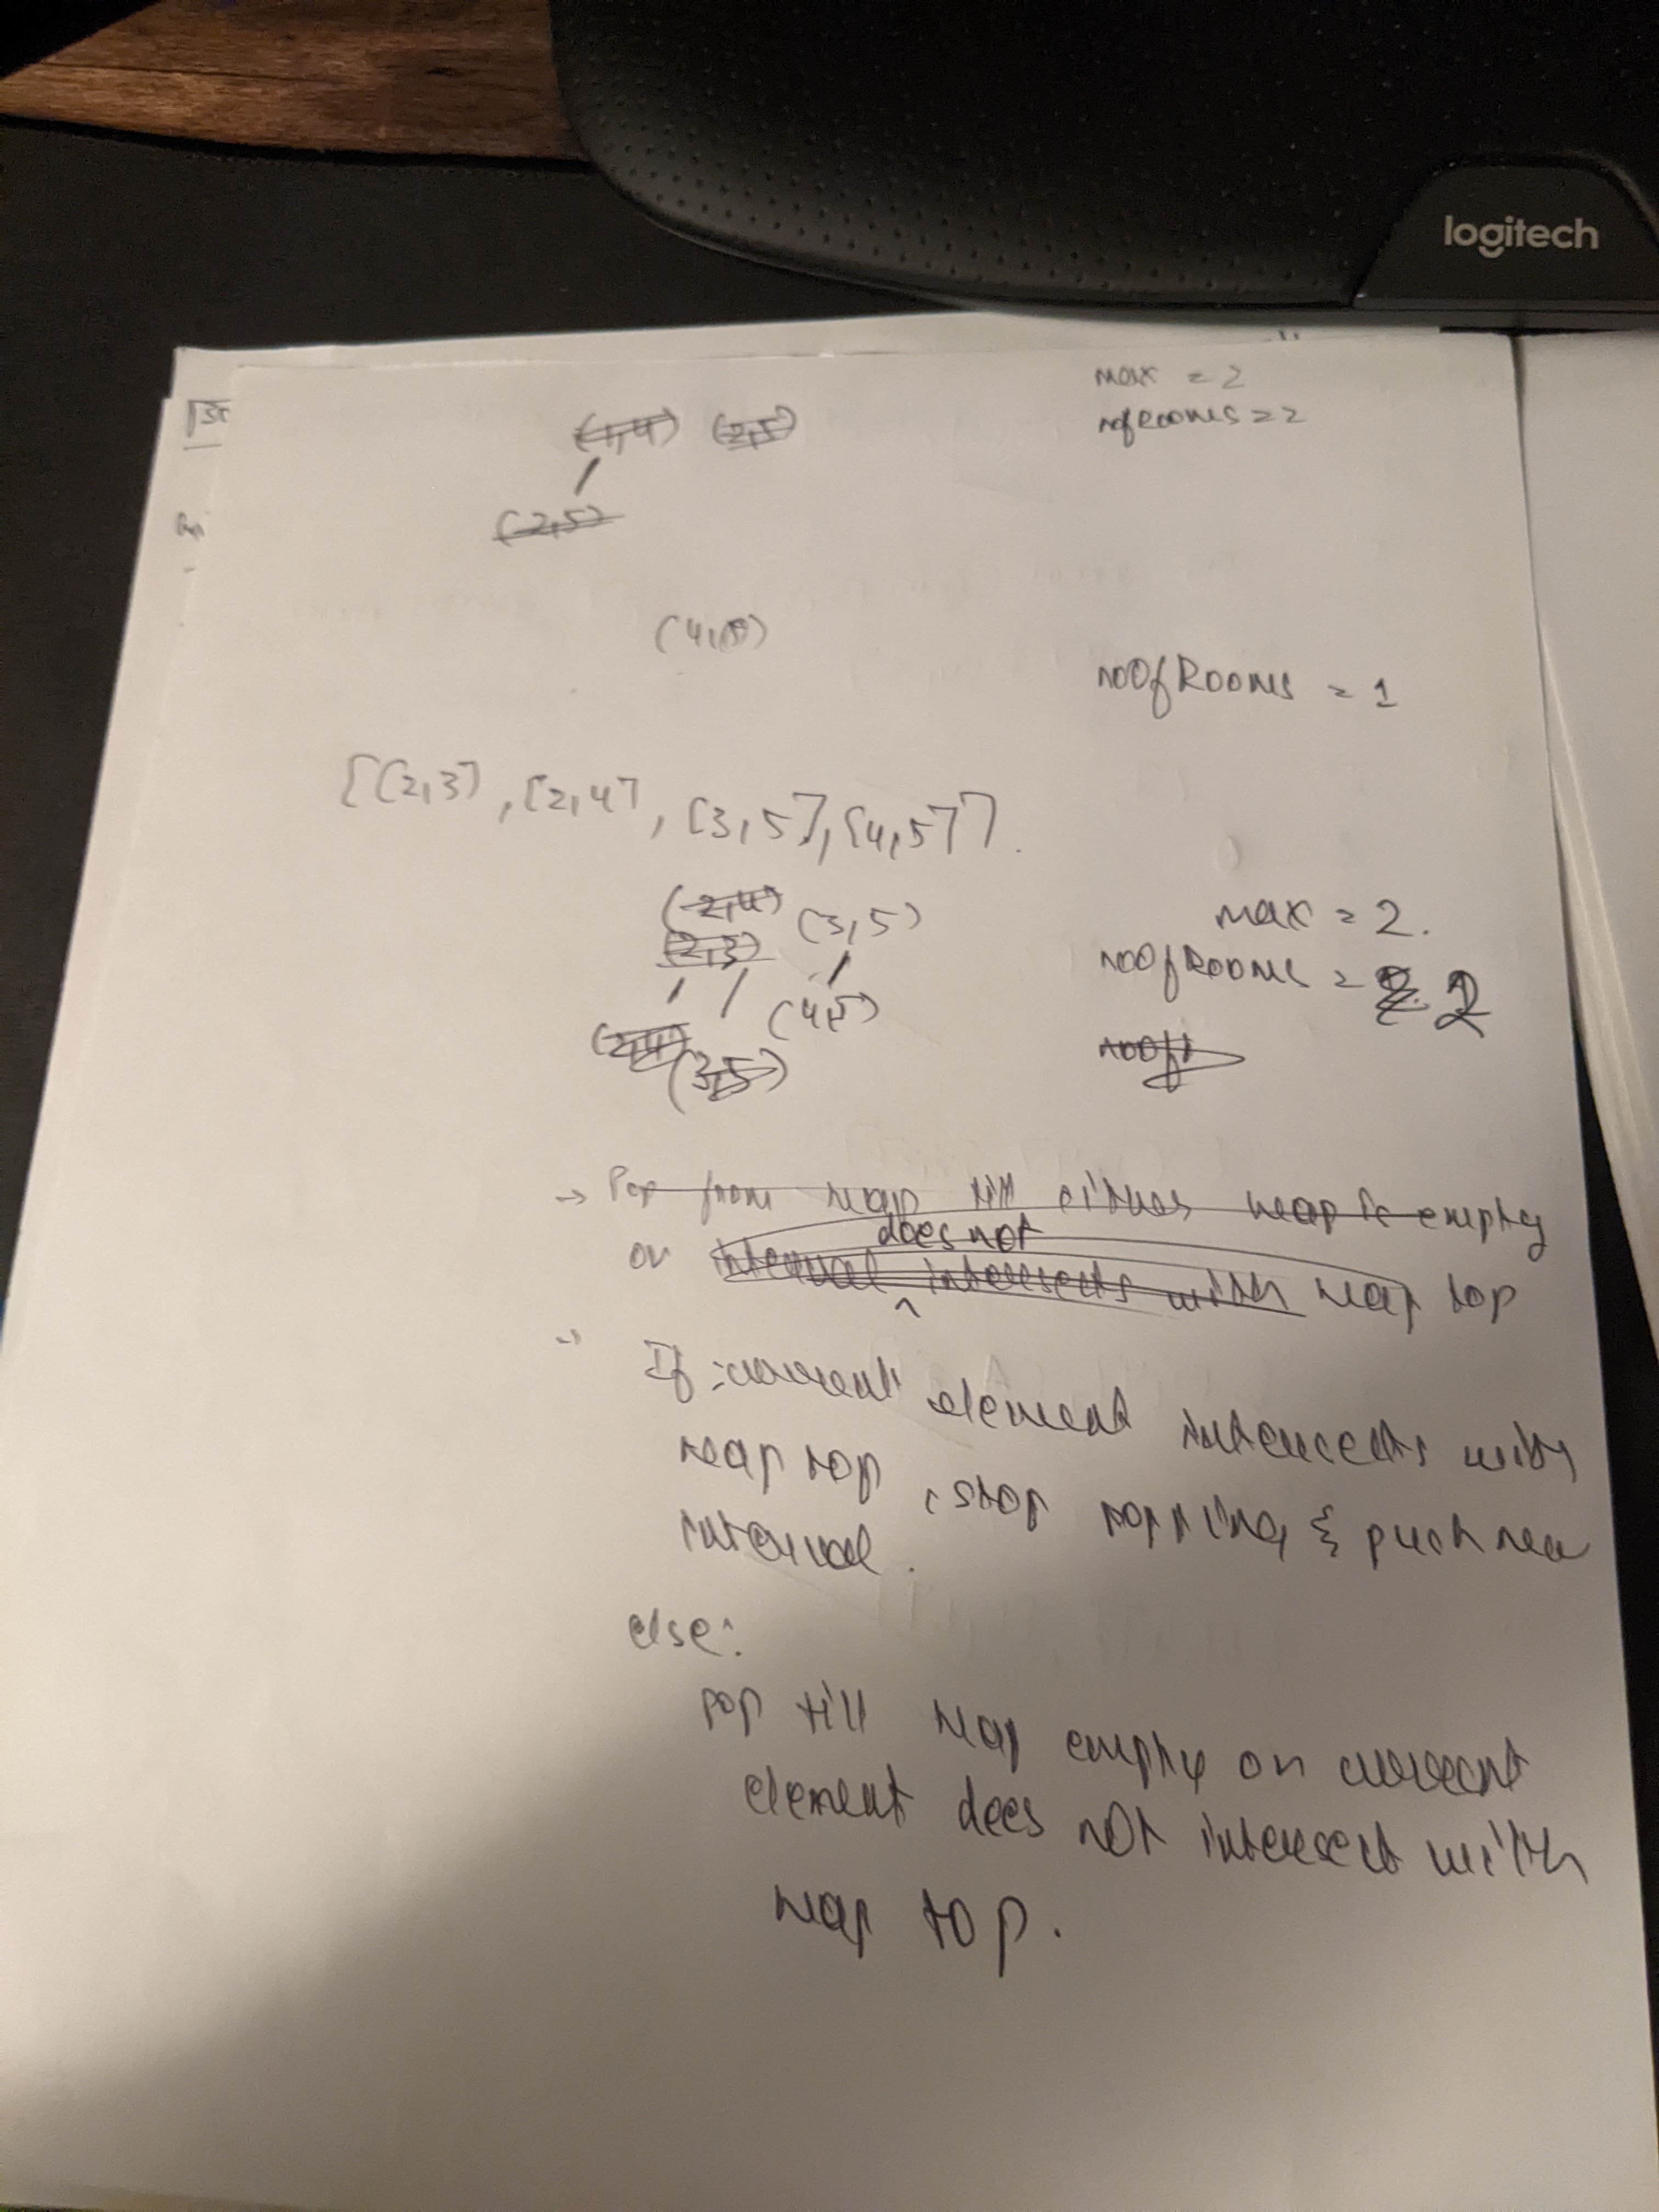 logitech
max = 2
nofRooms = 2
(1,4) (2,5)
(2,5)
noOfRooms = 1
[[2,3], [2,4], [3,5], [4,5]].
(2,4) (3,5)
max = 2.
(2,3)
noOfRooms = 2
(4,5)
(2,4) (3,5)
noOf
→ Pop from heap till either heap is empty
does not
or interval ^ intersects with heap top
→ If current element intersects with
heap top, stop popping & push new
interval.
else:
pop till heap empty or current
element does not intersect with
heap top.